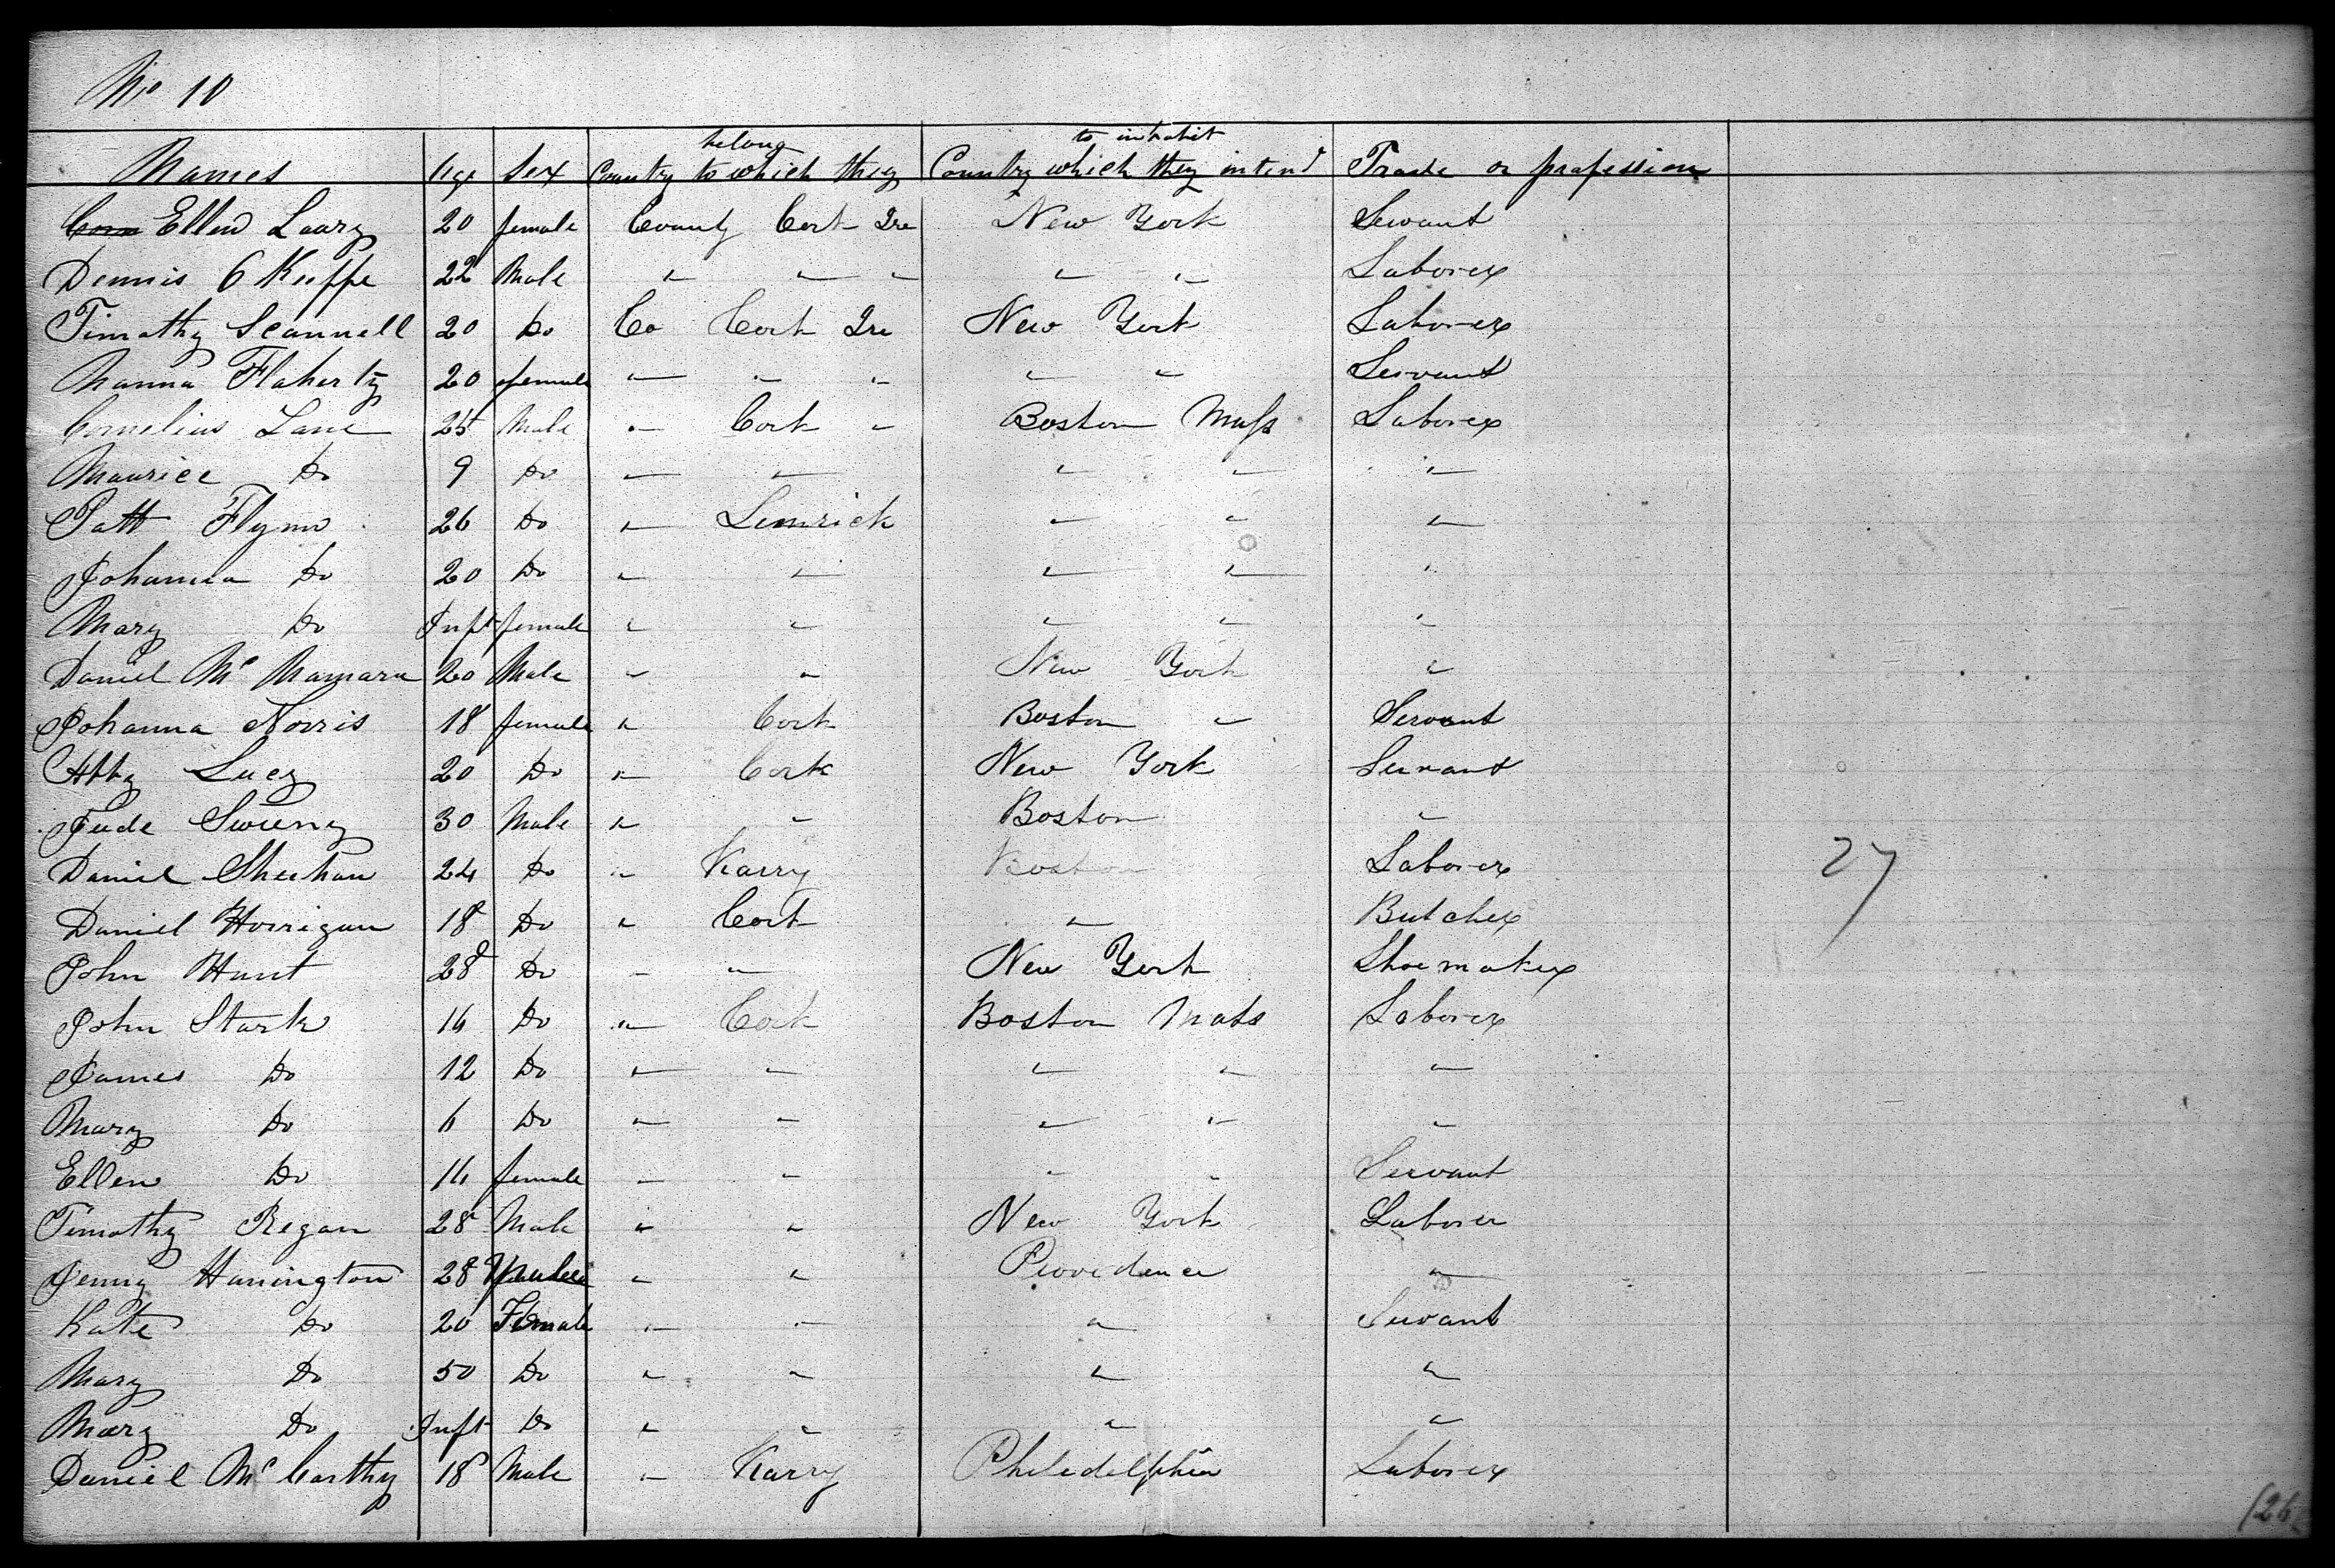 No 10
belong to inhabit
Names Age Sex Country to which they Country which they intend Trade or profession
Ellen Leary 20 female County Cork Ire New York Servant
Dennis O Keeffe 22 Male " " " " " Laborer
Timothy Scannell 20 Do Co Cork Ire New York Laborer
Nanna Flaherty 20 female " " " " " Servant
Cornelius Lane 25 Male " Cork " Boston Mass Laborer
Maurice Do 9 Do " " " " "
Patt Flynn 26 Do " Limrick " " "
Johanna Do 20 Do " " " " "
Mary Do Inft female " " " " "
Daniel Mc Namara 20 Male " " New York "
Johanna Norris 18 female " Cork Boston " Servant
Abby Lucy 20 Do " Cork New York Servant
Jude Sweeny 30 Male " " Boston "
Daniel Sheehan 24 Do " Karry Boston Laborer
27
Daniel Horrigan 18 Do " Cork " Butcher
John Hunt 28 Do " " New York Shoemaker
John Stark 14 Do " Cork Boston Mass Laborer
James Do 12 Do " " " " "
Mary Do 6 Do " " " " "
Ellen Do 14 female " " " " Servant
Timothy Regan 28 Male " " New York Laborer
Jenny Hanington 28 " " Providence "
Kate Do 20 Female " " " Servant
Mary Do 50 Do " " " "
Mary Do Inft Do " " " "
Daniel Mc Carthy 18 Male " Karry Philedelphia Laborer